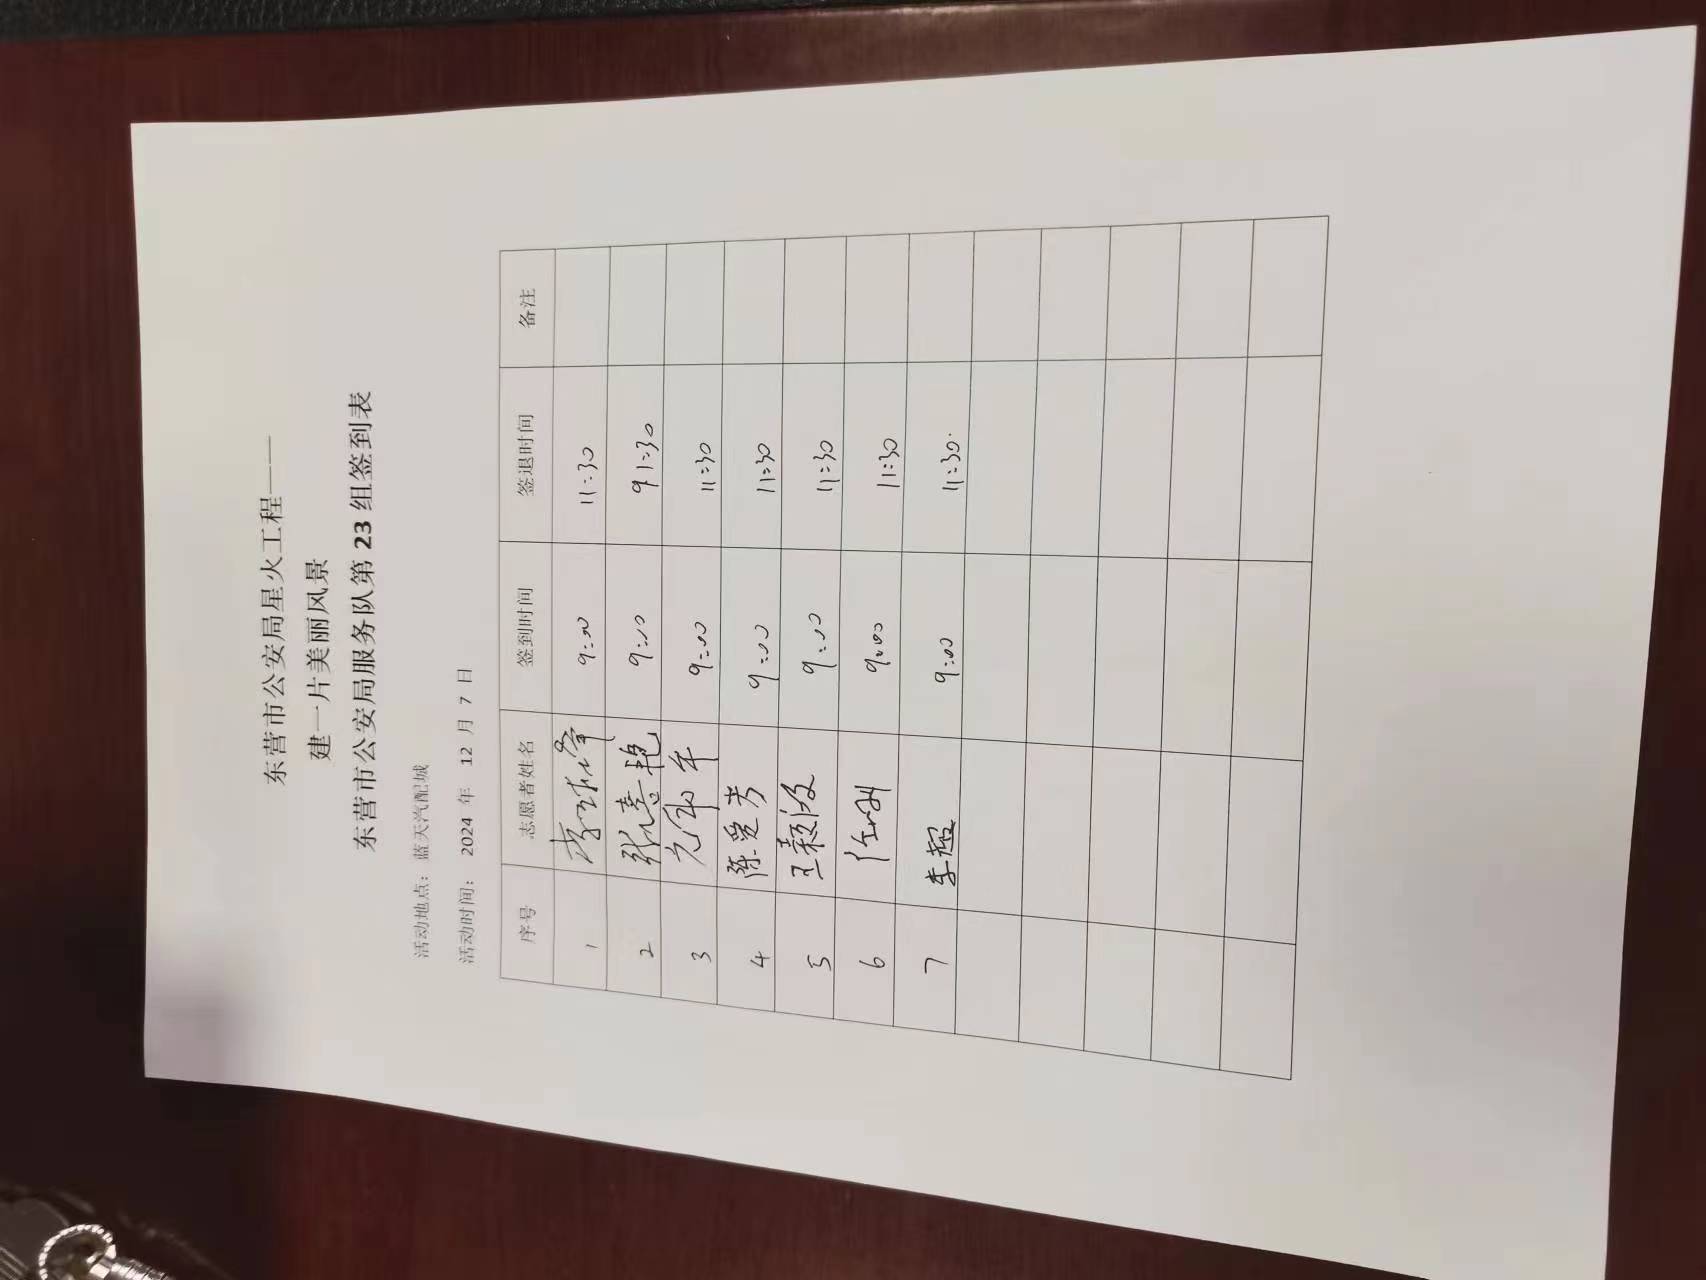 东营市公安局星火工程——
建一片美丽风景
东营市公安局服务队第 23 组签到表
活动地点：蓝天汽配城
活动时间： 2024 年 12 月 7 日
序号 志愿者姓名 签到时间 签退时间 备注
1 9:00 11:30
2 张喜艳 9:00 9 1:30
3 9:00 11:30
4 陈爱芳 9:00 11:30
5 王颖波 9:00 11:30
6 9:00 11:30
7 李超 9:00 11:30.